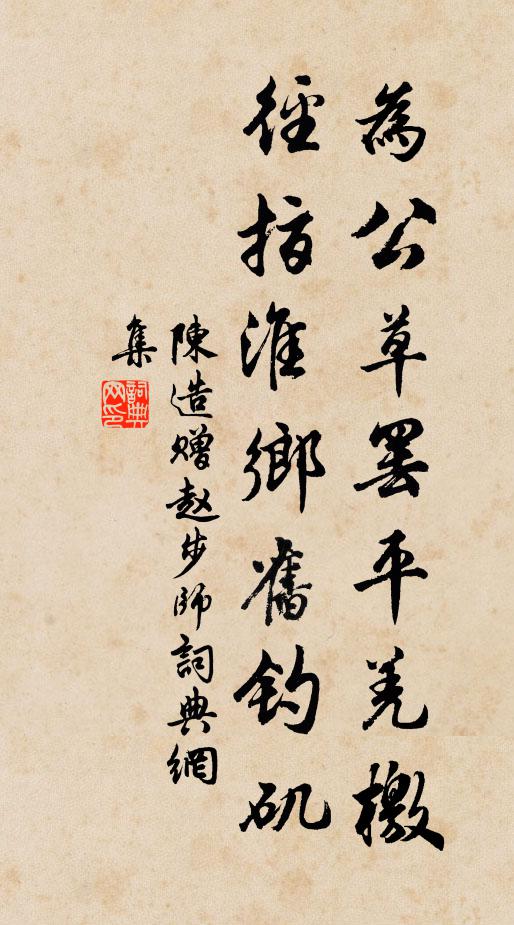 為公草罢平羌檄
徑指淮鄉舊釣矶
陳造贈赵步師詞典網
集
詞典
网印